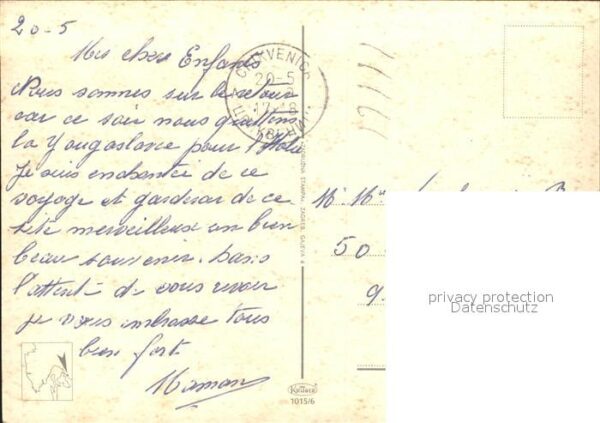 20-5
Mes chers Enfants
Nous sommes sur le retour
car ce soir nous quittons
la Yougoslavie pour l'Italie
Je suis enchantée de ce
voyage et garderai de ce
site merveilleux un bien
beau souvenir. Dans
l'attente de vous revoir
je vous embrasse tous
bien fort
Maman
20-5
17-18
M. Mme
50
9
privacy protection
Datenschutz
1015/6